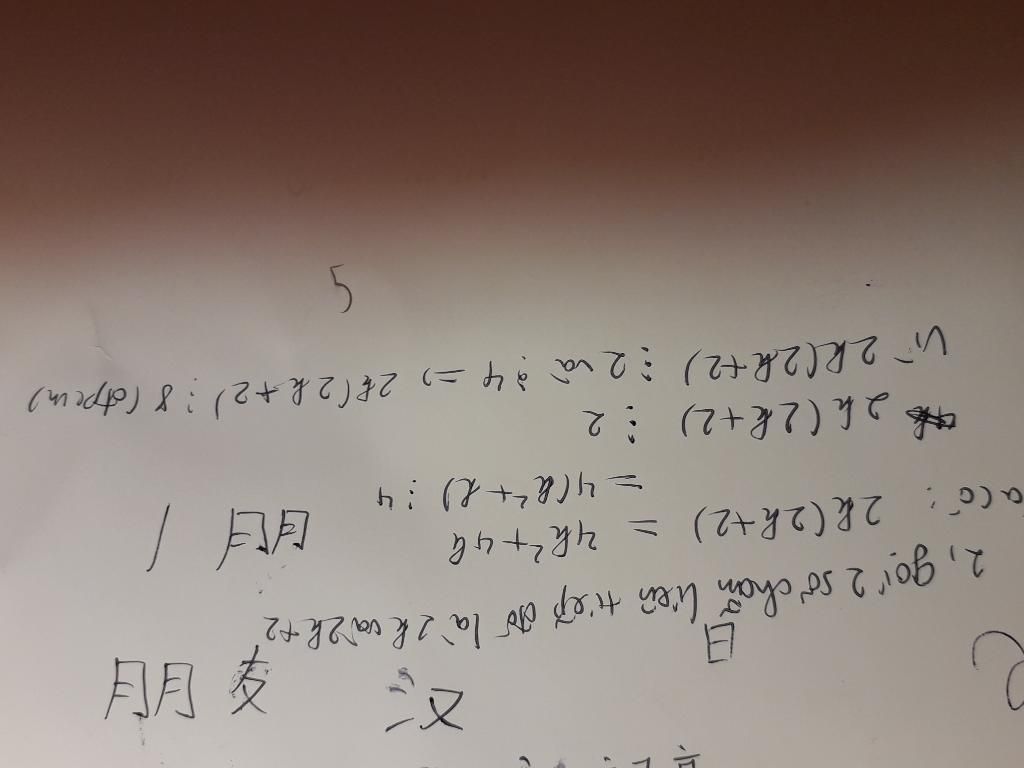 朋友 汉
日
2, gọi 2 số chẵn liên tiếp đó là 2k và 2k+2
a có: 2k(2k+2) = 4k²+4k
= 4(k²+k) ⋮ 4
2k(2k+2) ⋮ 2
Vì 2k(2k+2) ⋮ 2 và ⋮ 4 => 2k(2k+2) ⋮ 8 (đpcm)
朋
5